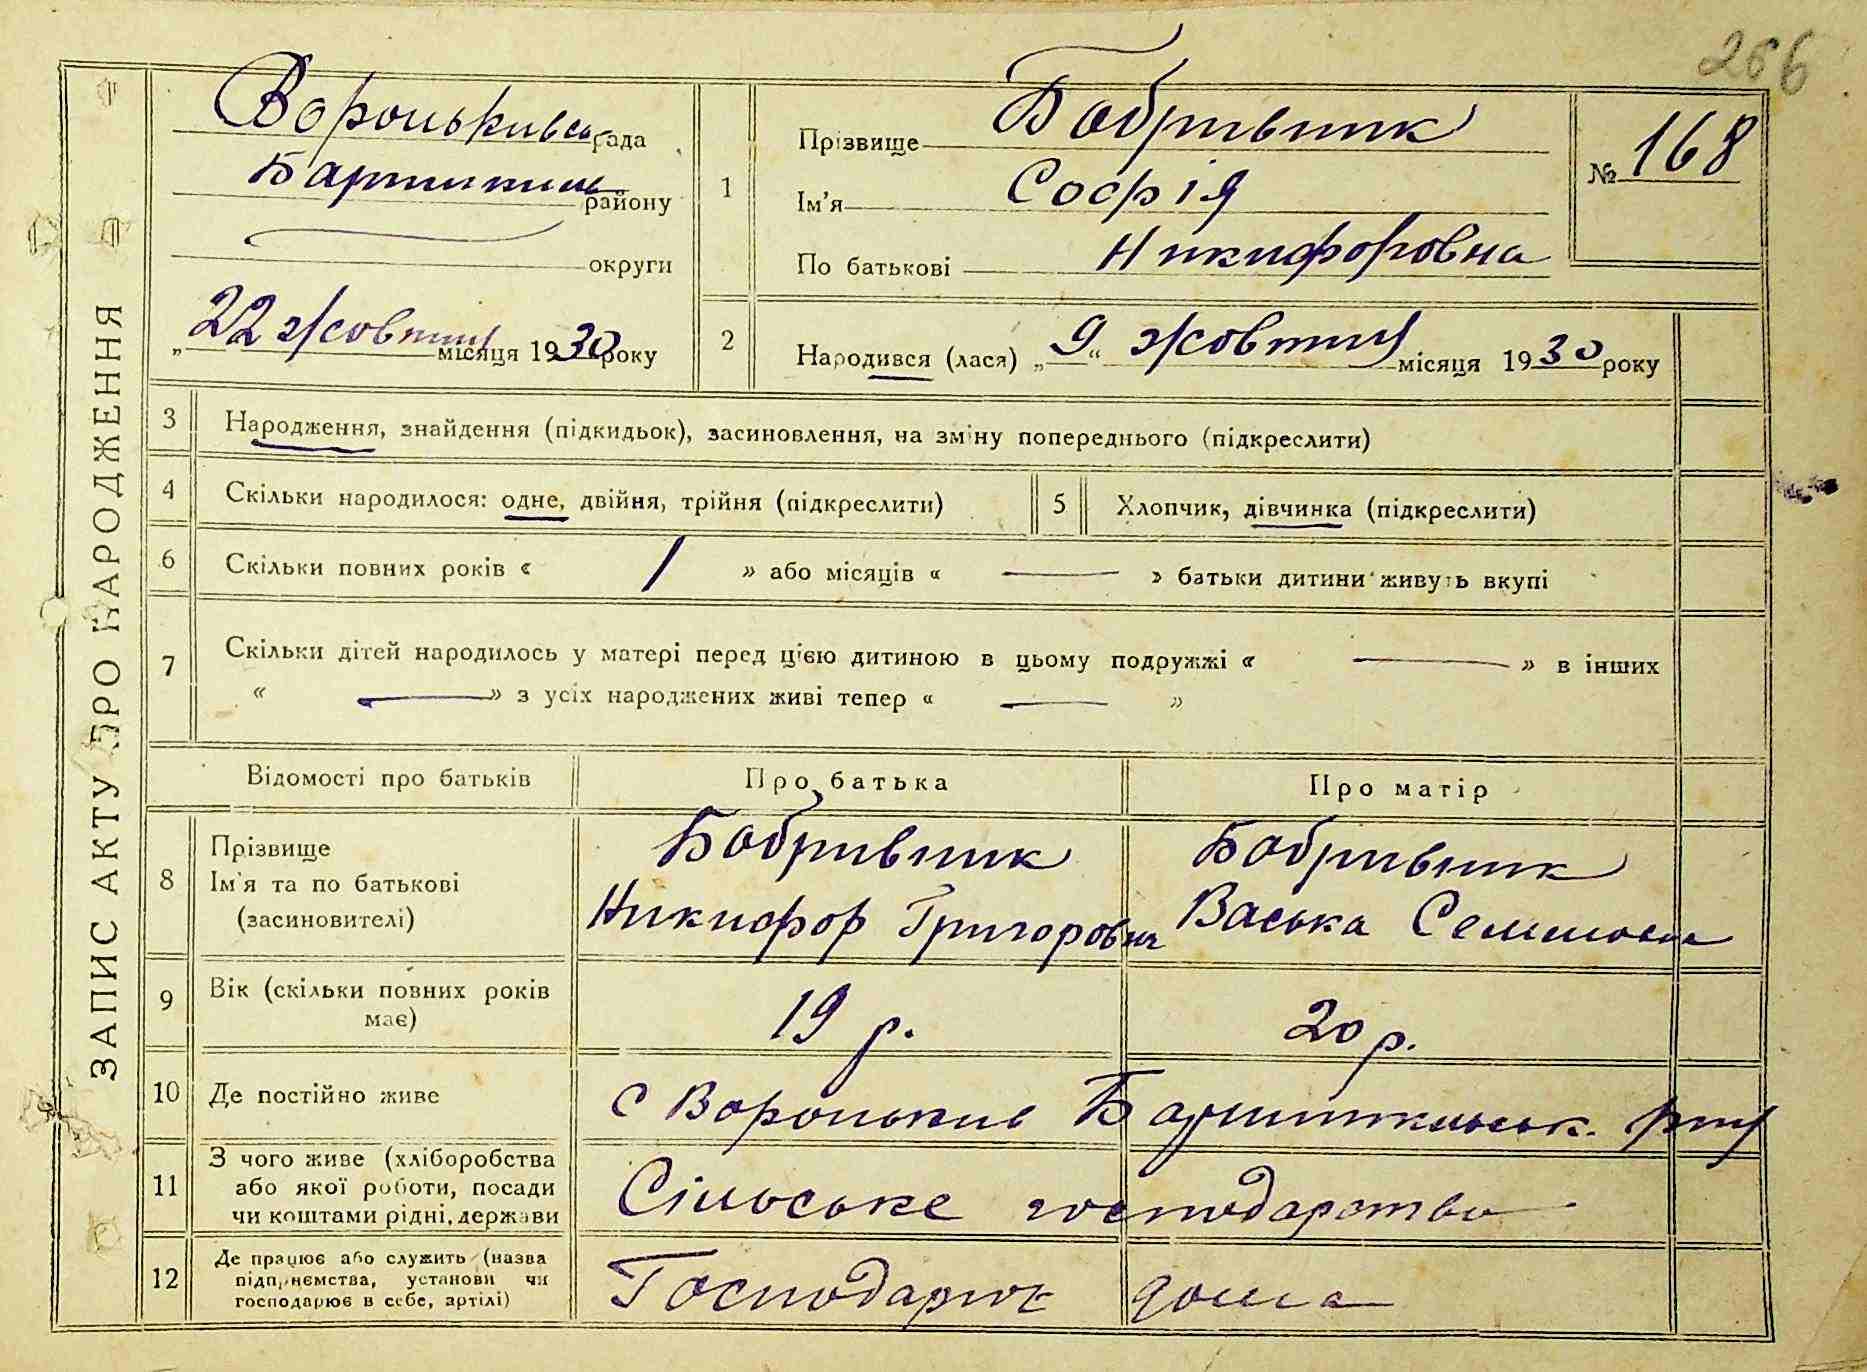 266
ЗАПИС АКТУ ПРО НАРОДЖЕННЯ
Вороньківсь рада
району
округи
„22 жовтня місяця 1930 року
1
Прізвище Бобривник
Ім'я Софія
По батькові Никифоровна
№ 168
2
Народився (лася) „9“ жовтня місяця 1930 року
3 Народження, знайдення (підкидьок), засиновлення, на зміну попереднього (підкреслити)
4 Скільки народилося: одне, двійня, трійня (підкреслити)
5 Хлопчик, дівчинка (підкреслити)
6 Скільки повних років « 1 » або місяців « — » батьки дитини живуть вкупі
7 Скільки дітей народилось у матері перед цією дитиною в цьому подружжі « — » в інших
« — » з усіх народжених живі тепер « — »
Відомості про батьків
Про батька
Про матір
8
Прізвище
Ім'я та по батькові
(засиновителі)
Бобривник
Никифор Григорович
Бобривник
Васька
9
Вік (скільки повних років
має)
19 р.
20 р.
10 Де постійно живе
с Вороньків
11
З чого живе (хліборобства
або якої роботи, посади
чи коштами рідні, держави
Сільське господарство
12
Де працює або служить (назва
підприємства, установи чи
господарює в себе, артілі)
Господарює дома